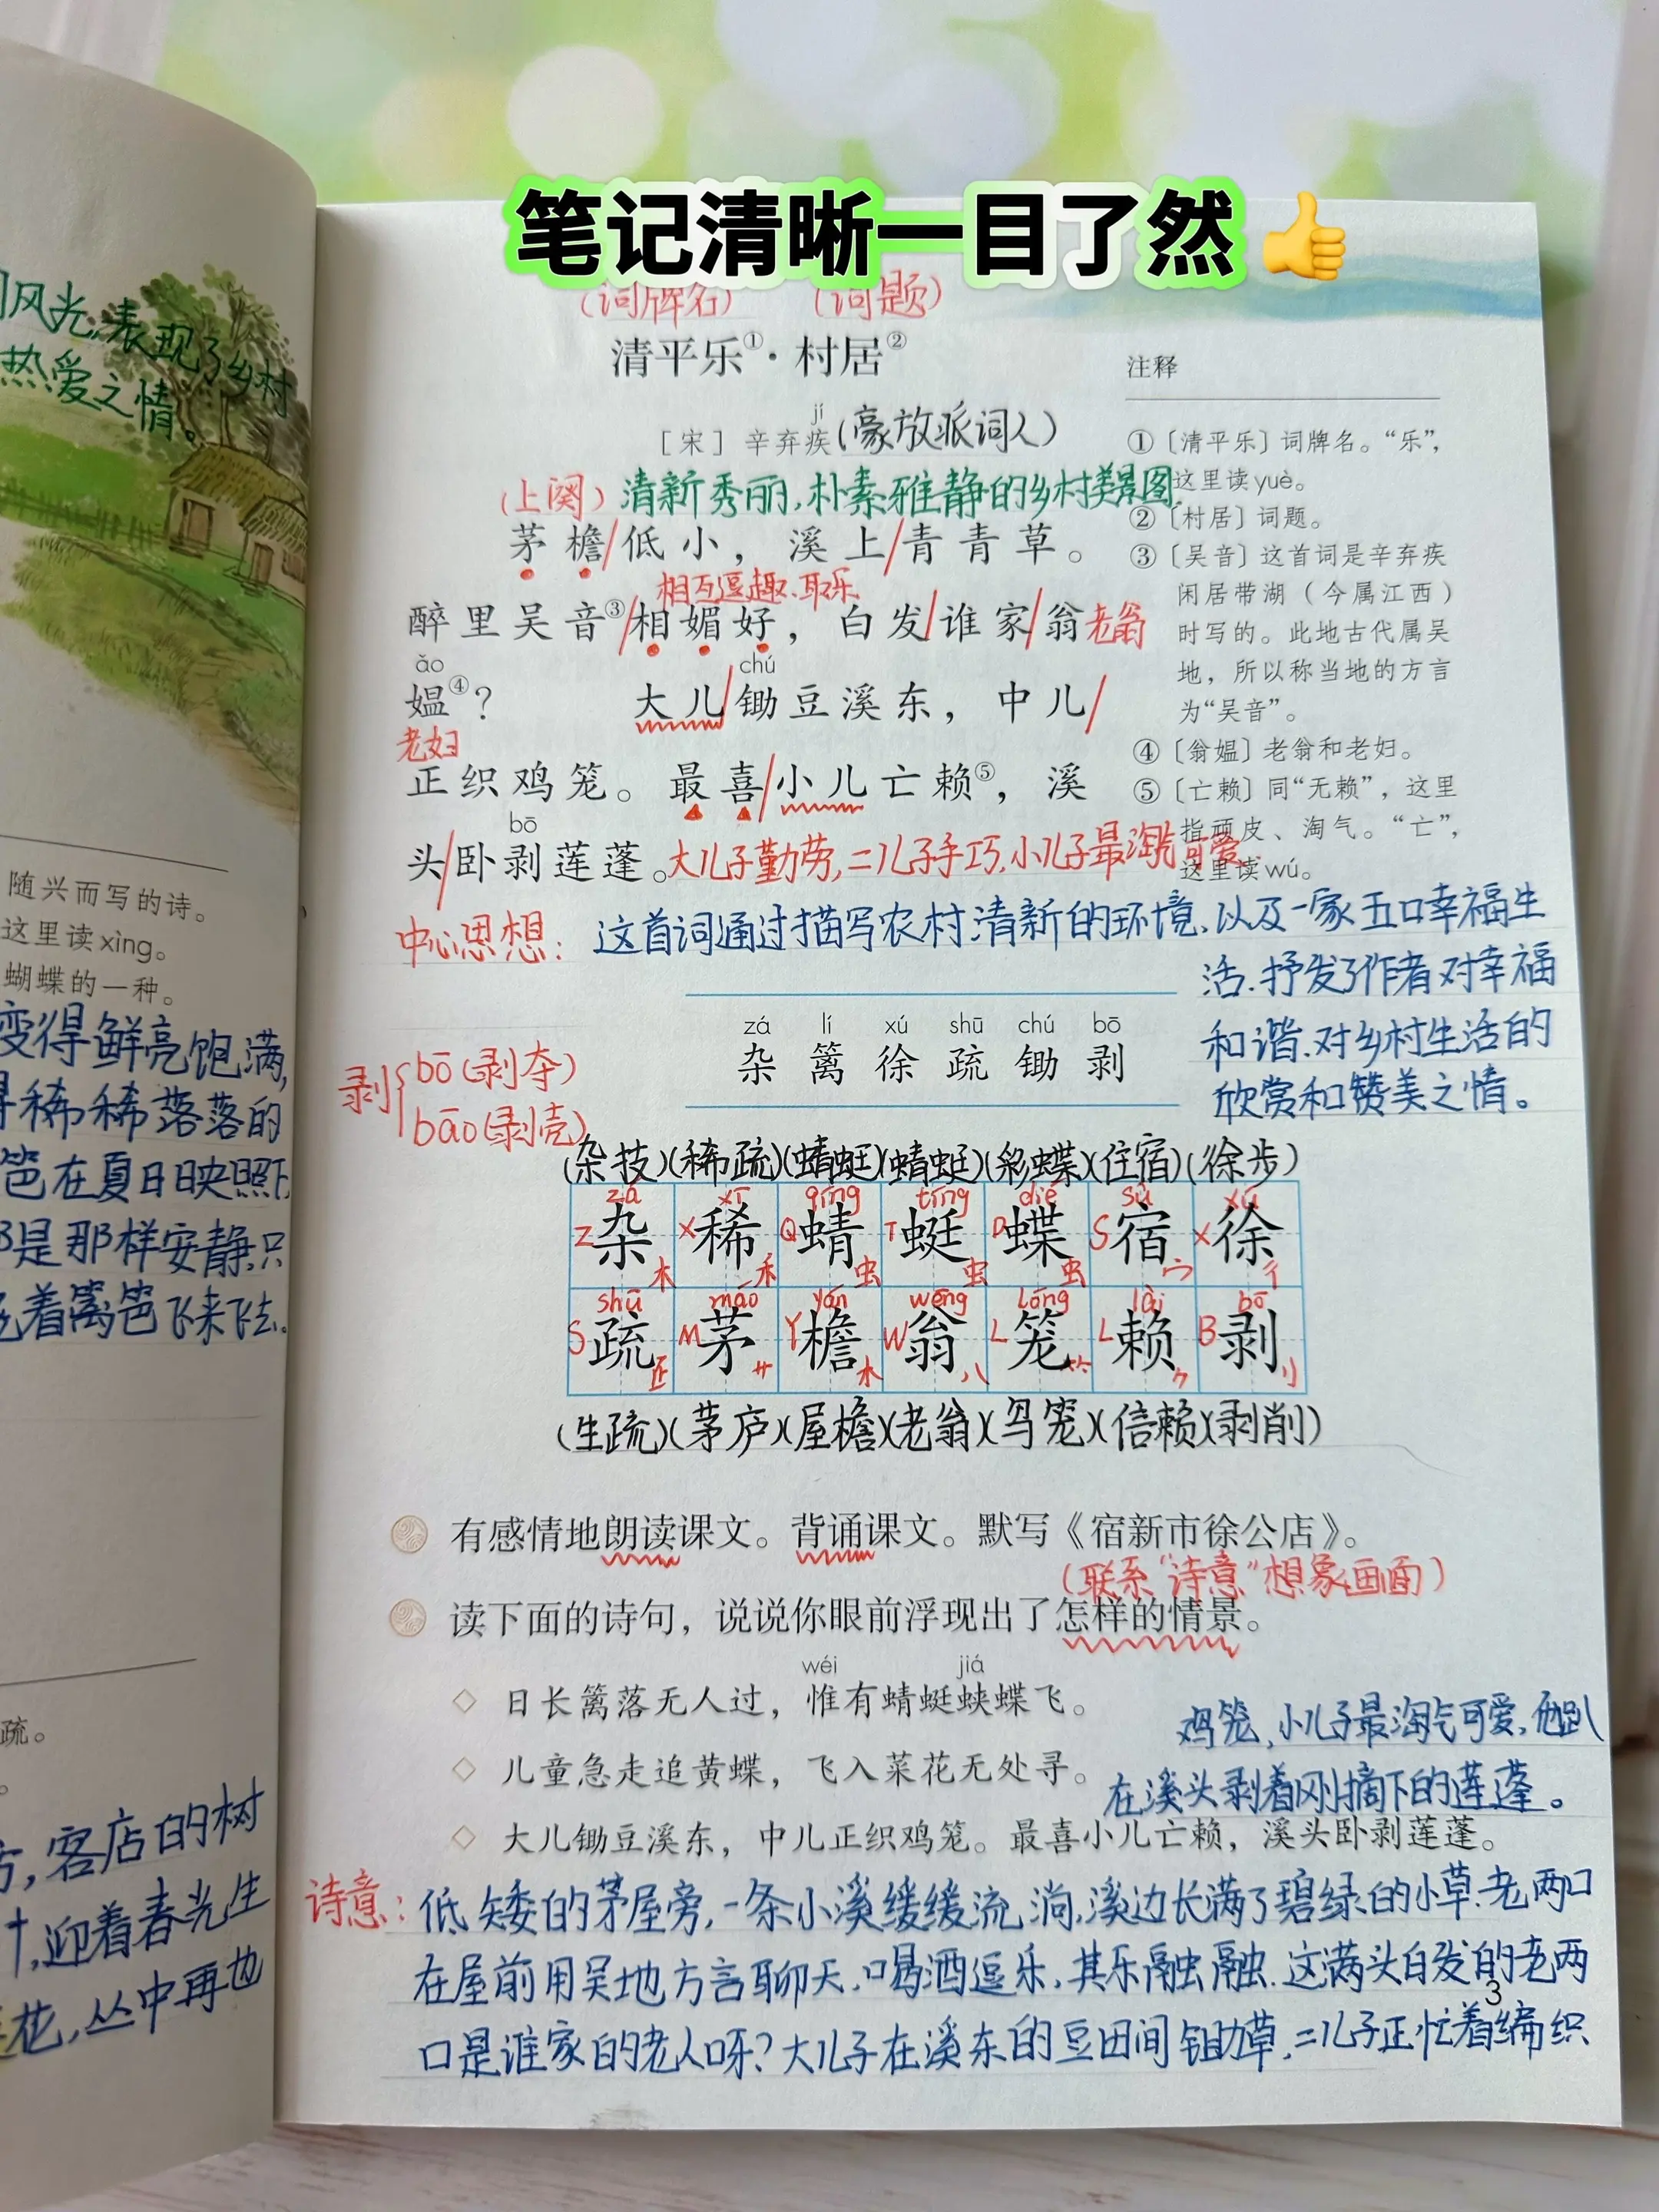 笔记清晰一目了然👍
风光,表现了乡村
热爱之情。
随兴而写的诗。
这里读xìng。
蝴蝶的一种。
变得鲜亮饱满,
得稀稀落落的
笆在夏日日映照下,
那是那样安静,只
着篱笆飞来飞去。
疏。
客店的树
迎着春光生
花,丛中再也
(词牌名) (词题)
清平乐①·村居②
jí
[宋]辛弃疾(豪放派词人)
(上阕)清新秀丽,朴素雅静的乡村美景图.
茅檐/低小,溪上/青青草。
相互逗趣.取乐
醉里吴音③/相媚好,白发/谁家/翁老翁
ǎo chú
媪④? 大儿/锄豆溪东,中儿/
老妇
正织鸡笼。最喜/小儿亡赖⑤,溪
bō
头/卧剥莲蓬。大儿子勤劳,二儿子手巧,小儿子最淘气可爱
注释
①〔清平乐〕词牌名。“乐”,
这里读yuè。
②〔村居〕词题。
③〔吴音〕这首词是辛弃疾
闲居带湖(今属江西)
时写的。此地古代属吴
地,所以称当地的方言
为“吴音”。
④〔翁媪〕老翁和老妇。
⑤〔亡赖〕同“无赖”,这里
指顽皮、淘气。“亡”,
这里读wú。
中心思想:这首词通过描写农村清新的环境,以及一家五口幸福生
活.抒发了作者对幸福
和谐.对乡村生活的
欣赏和赞美之情。
zá lí xú shū chú bō
杂 篱 徐 疏 锄 剥
剥{bō(剥夺)
bāo(剥壳)
(杂技)(稀疏)(蜻蜓)(蜻蜓)(彩蝶)(住宿)(徐步)
zá xī qīng tíng dié sù xú
Z杂木 X稀禾 Q蜻虫 T蜓虫 D蝶虫 S宿宀 X徐彳
shū máo yán wēng lóng lài bō
S疏 M茅艹 Y檐木 W翁八 L笼⺮ L赖⺈ B剥刂
(生疏)(茅庐)(屋檐)(老翁)(鸟笼)(信赖)(剥削)
有感情地朗读课文。背诵课文。默写《宿新市徐公店》。
(联系“诗意”想象画面)
读下面的诗句,说说你眼前浮现出了怎样的情景。
wéi jiá
◇ 日长篱落无人过,惟有蜻蜓蛱蝶飞。
◇ 儿童急走追黄蝶,飞入菜花无处寻。
◇ 大儿锄豆溪东,中儿正织鸡笼。最喜小儿亡赖,溪头卧剥莲蓬。
诗意:低矮的茅屋旁,一条小溪缓缓流淌,溪边长满了碧绿的小草.老两口
在屋前用吴地方言聊天,喝酒逗乐,其乐融融.这满头白发的老两
口是谁家的老人呀?大儿子在溪东的豆田间锄草,二儿子正忙着编织
鸡笼,小儿子最淘气可爱,他趴
在溪头剥着刚摘下的莲蓬。
3